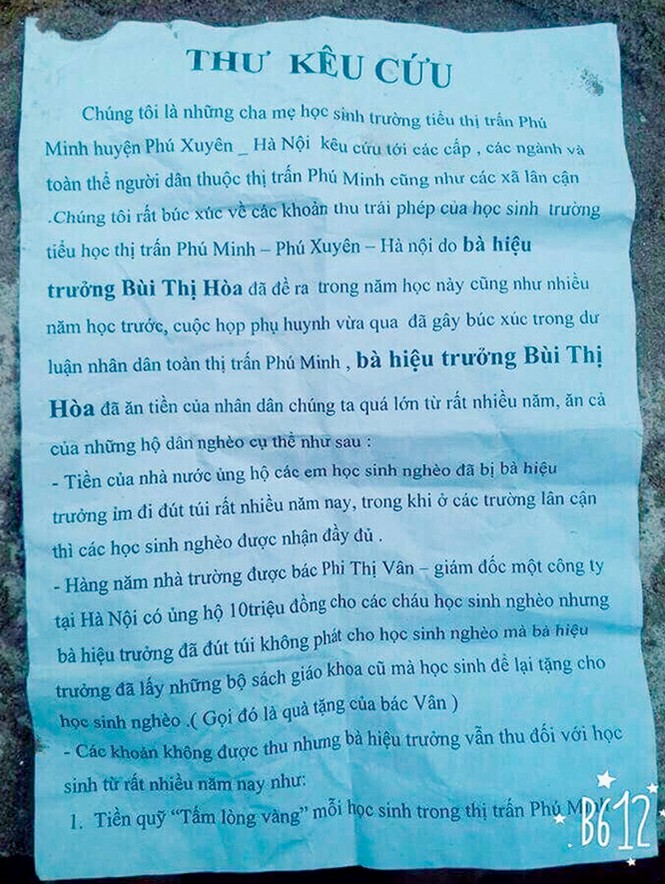 THƯ KÊU CỨU
Chúng tôi là những cha mẹ học sinh trường tiểu thị trấn Phú
Minh huyện Phú Xuyên _ Hà Nội kêu cứu tới các cấp , các ngành và
toàn thể người dân thuộc thị trấn Phú Minh cũng như các xã lân cận
.Chúng tôi rất búc xúc về các khoản thu trái phép của học sinh trường
tiểu học thị trấn Phú Minh – Phú Xuyên – Hà nội do bà hiệu
trưởng Bùi Thị Hòa đã đề ra trong năm học này cũng như nhiều
năm học trước, cuộc họp phụ huynh vừa qua đã gây búc xúc trong dư
luận nhân dân toàn thị trấn Phú Minh , bà hiệu trưởng Bùi Thị
Hòa đã ăn tiền của nhân dân chúng ta quá lớn từ rất nhiều năm, ăn cả
của những hộ dân nghèo cụ thể như sau :
- Tiền của nhà nước ủng hộ các em học sinh nghèo đã bị bà hiệu
trưởng ỉm đi đút túi rất nhiều năm nay, trong khi ở các trường lân cận
thì các học sinh nghèo được nhận đầy đủ .
- Hàng năm nhà trường được bác Phi Thị Vân – giám đốc một công ty
tại Hà Nội có ủng hộ 10triệu đồng cho các cháu học sinh nghèo nhưng
bà hiệu trưởng đã đút túi không phát cho học sinh nghèo mà bà hiệu
trưởng đã lấy những bộ sách giáo khoa cũ mà học sinh để lại tặng cho
học sinh nghèo .( Gọi đó là quà tặng của bác Vân )
- Các khoản không được thu nhưng bà hiệu trưởng vẫn thu đối với học
sinh từ rất nhiều năm nay như:
1. Tiền quỹ “Tấm lòng vàng” mỗi học sinh trong thị trấn Phú
B612